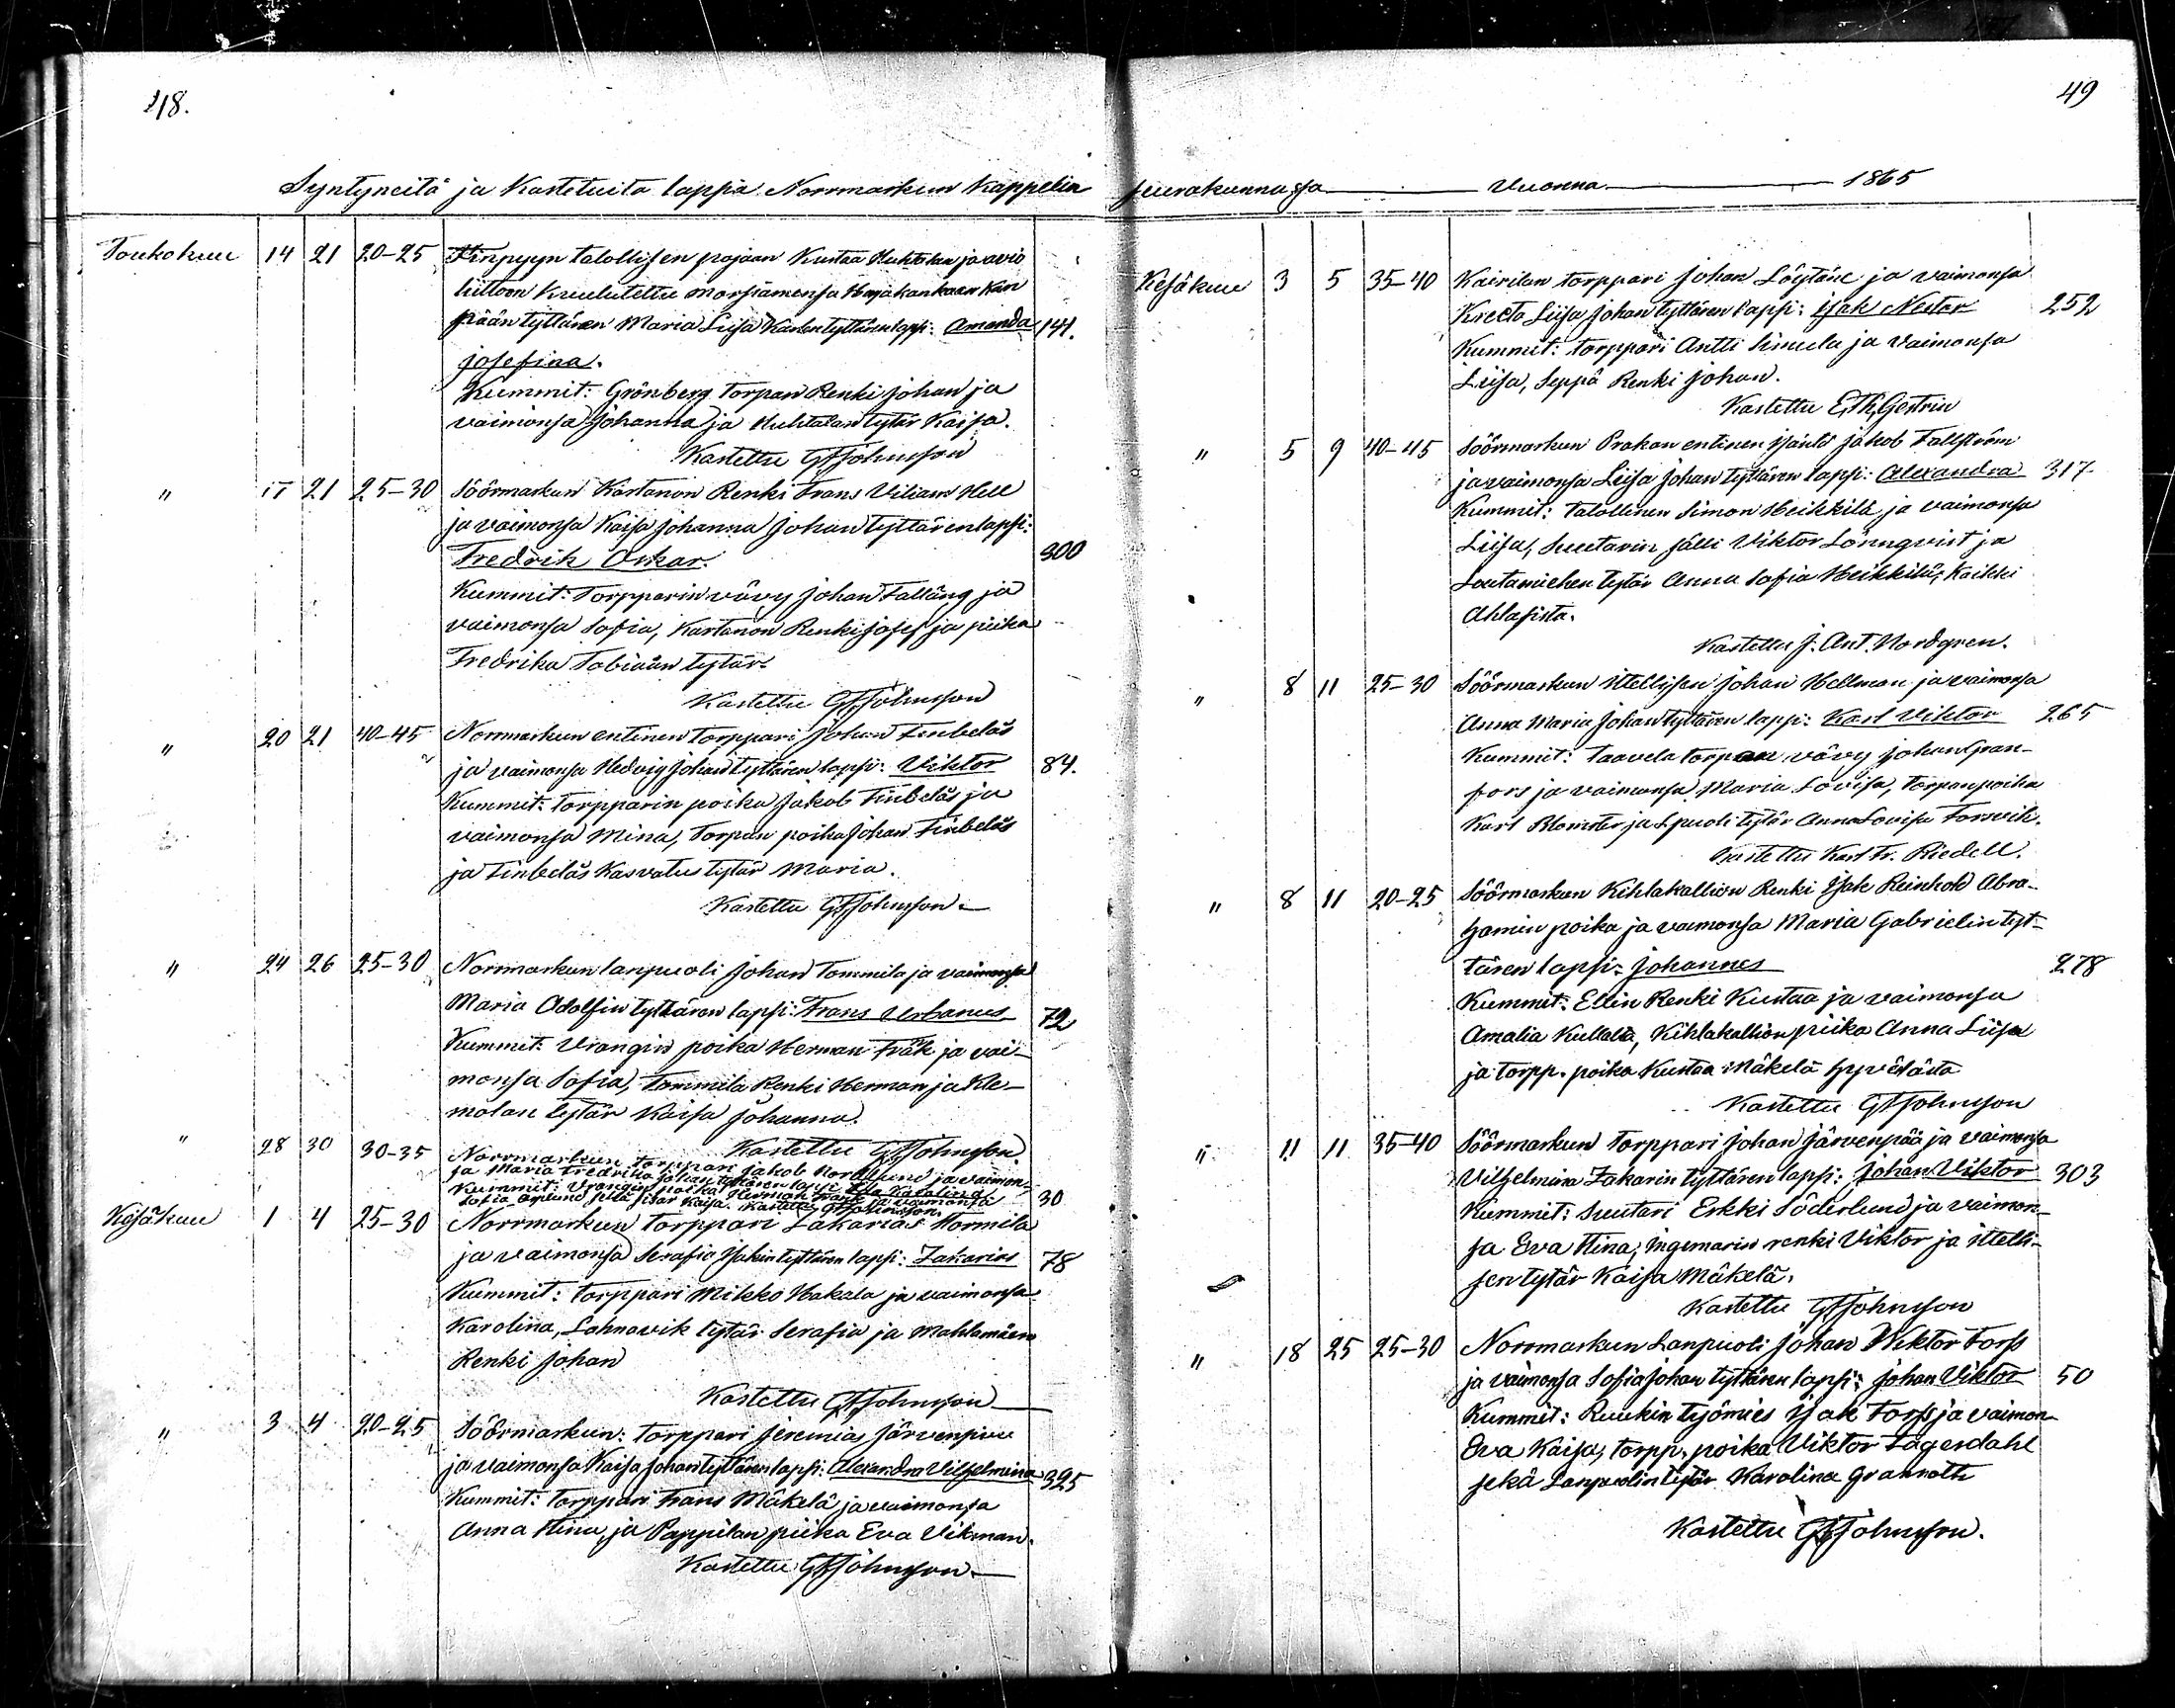 48.
Syntyneitä ja Kastetuita lapsia Norrmarkun Kappelin
Toukokuu 14 21 20-25 Finpyyn talollisen pojan Kustaa Kuhtalan ja avio
liittoon Kuulutettu morsiamensa
pään tyttären Maria Liisa tyttären laps: Amanda 141.
Josefina.
Kummit: Grönberg torpan Renki Johan ja
vaimonsa Johanna ja Kuhtalan tytär Kaisa.
Kastettu GFJohnsson
" 17 21 25-30 Söörmarkun Kartanon Renki Frans Viliam Hell
ja vaimonsa Kaisa Johanna Johan tyttären lapsi:
Fredrik Oskar. 300
Kummit: Torpparin vävy Johan Falläng ja
vaimonsa Sofia, Kartanon Renki Josef ja piika
Fredrika Tobiaan tytär.
Kastettu GFJohnsson
" 20 21 40-45 Norrmarkun entinen torppari Johan Finbeläs
ja vaimonsa Hedvig Johan tyttären lapsi: Viktor 84.
Kummit: Torpparin poika Jakob Finbeläs ja
vaimonsa Mina, Torpan poika Johan Finbeläs
ja Finbeläs Kasvatus tytär Maria.
Kastettu GFJohnsson
" 24 26 25-30 Norrmarkun lanpuoli Johan Tommila ja vaimonsa
Maria Adolfin tyttären lapsi: Frans Urbanus 72
Kummit: Vrangin poika Herman Träk ja vai-
monsa Sofia, Tommila Renki Herman ja Kle-
molan tytär Kaisa Johanna.
Kastettu GFJohnsson.
" 28 30 30-35 Norrmarkun torppari Jakob Norrlund ja vaimon-
sa Maria Fredrika Johan tyttären lapsi Ida Karolina
Kummit: Vrangin poika Herman Träk ja vaimonsa 30
Sofia sisar Kaisa. Kastettu GFJohnsson.
Kesäkuu 1 4 25-30 Norrmarkun torppari Zakarias Tormila
ja vaimonsa Serafia Isakin tyttären lapsi: Zakarias 78
Kummit: torppari Mikko Hakala ja vaimonsa
Karolina, Lahnavik tytär Serafia ja Mahlamäen
Renki Johan
Kastettu GFJohnsson
" 3 4 20-25 Söörmarkun: torppari Jeremias Järvenpää
ja vaimonsa Kaisa Johan tyttären lapsi: Alexandra Vilhelmina 325
Kummit: torppari Frans Mäkelä ja vaimonsa
Anna Stina, ja Pappilan piika Eva Vikman.
Kastettu GFJohnsson.
49
seurakunnassa vuonna 1865
Kesäkuu 3 5 35-40 Kairilan torppari Johan Löytäne ja vaimonsa
Kreeta Liisa Johan tyttären lapsi: Isak Nestor 252
Kummit: torppari Antti Simula ja vaimonsa
Liisa, Seppä Renki Johan.
Kastettu E.Th.Gestrin
" 5 9 40-45 Söörmarkun Prakan entinen isäntä Jakob Fallström
ja vaimonsa Liisa Johan tyttären lapsi: Alexandra 317
Kummit: talollinen Simon Heikkilä ja vaimonsa
Liisa, Suutarin sälli Viktor Lönnqvist ja
Lautamiehen tytär Anna Sofia Heikkilä; Kaikki
Ahlaisista.
Kastettu J. Ant. Nordgren.
" 8 11 25-30 Söörmarkun ittellisen Johan Hellman ja vaimonsa
Anna Maria Johan tyttären lapsi: Karl Viktor 265
Kummit: Taavela torpan vävy Johan Gran-
fors ja vaimonsa Maria Lovisa, torpan poika
Karl Blomster ja Spuoli tytär Anna Lovisa Forsvik.
Kastettu Karl Fr. Riedell.
" 8 11 20-25 Söörmarkun Kihlakallion Renki Isak Reinhold Abra-
hamin poika ja vaimonsa Maria Gabrielin tyt-
tären lapsi: Johannes 278
Kummit: Ellin Renki Kustaa ja vaimonsa
Amalia Kullaalta, Kihlakallion piika Anna Liisa
ja torpp. poika Kustaa Mäkelä
Kastettu GFJohnsson
" 11 11 35-40 Söörmarkun torppari Johan Järvenpää ja vaimonsa
Vilhelmina Zakarin tyttären lapsi: Johan Viktor 303
Kummit: Suutari Erkki Söderlund ja vaimon-
sa Eva Stina, Ingemarin renki Viktor ja ittelli-
sen tytär Kaisa Mäkelä.
Kastettu GFJohnsson
" 18 25 25-30 Norrmarkun Lanpuoli Johan Wiktor Forss
ja vaimonsa Sofia Johan tyttären lapsi: Johan Viktor 50
Kummit: Ruukin työmies Isak Forss ja vaimon
Eva Kaisa, torpp. poika Viktor Lagerdahl
sekä Lanpuolin tytär Karolina Granroth
Kastettu GFJohnsson.